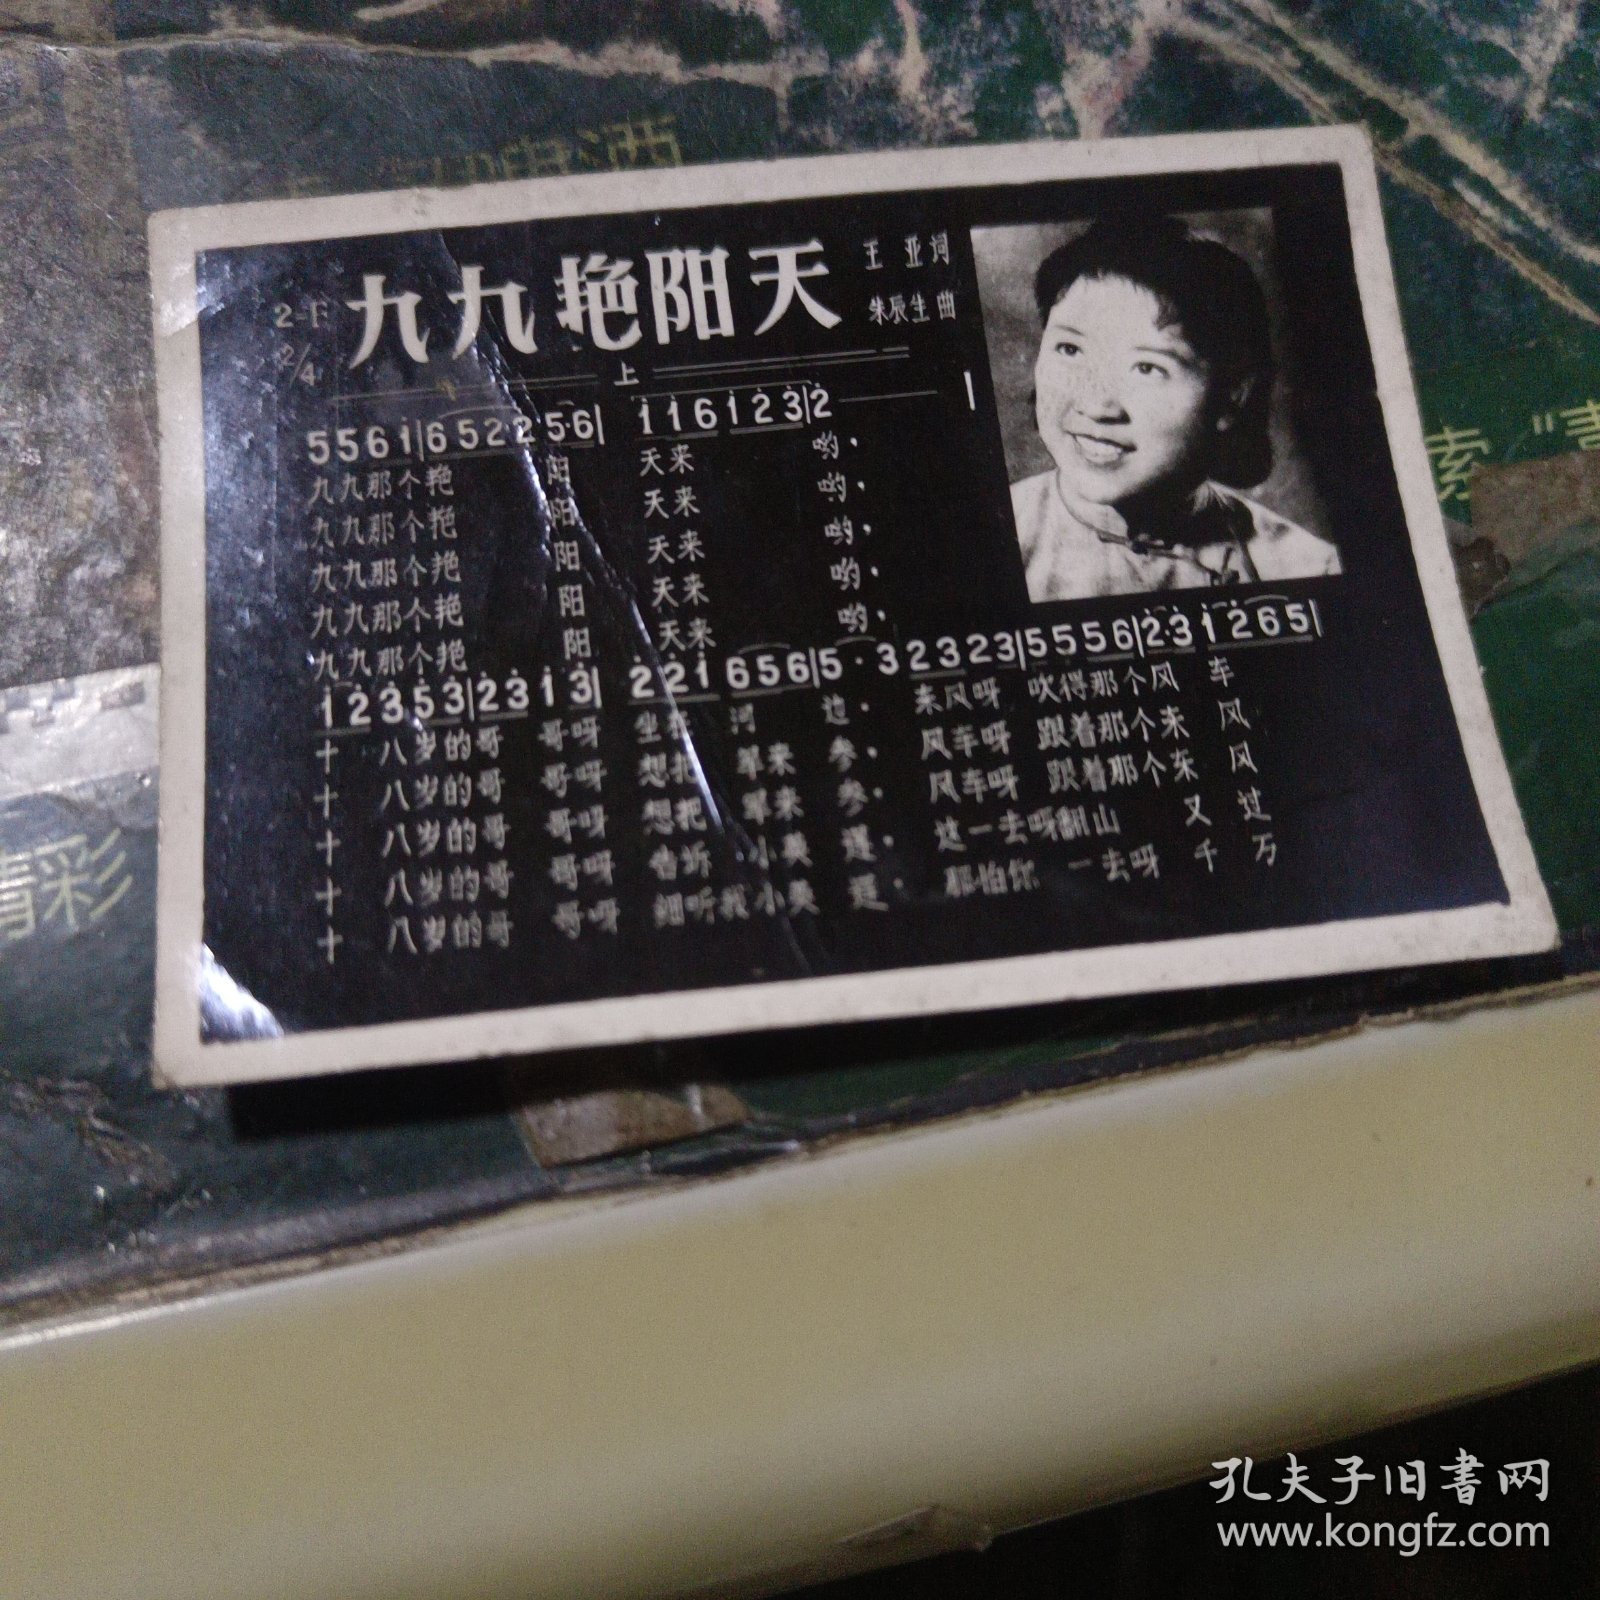 九九艳阳天
王亚词
朱辰生曲
2/4
上
5561|65225·6| 116123|2
九九那个艳 阳 天来 哟，
九九那个艳 阳 天来 哟，
九九那个艳 阳 天来 哟，
九九那个艳 阳 天来 哟，
九九那个艳 阳 天来 哟，
12353|2313| 221 656|5·3 2323|5556|2·3 1265|
十 八岁的哥 哥呀 坐在 河 边， 东风呀 吹得那个风 车
十 八岁的哥 哥呀 想把 军来 参， 风车呀 跟着那个东 风
十 八岁的哥 哥呀 想把 军来 参， 风车呀 跟着那个东 风
十 八岁的哥 哥呀 告诉 小英 莲， 这一去呀翻山 又 过
十 八岁的哥 哥呀 细听我小英 莲， 那怕你 一去呀 千 万
精彩
索"書
西
孔夫子旧書网
www.kongfz.com